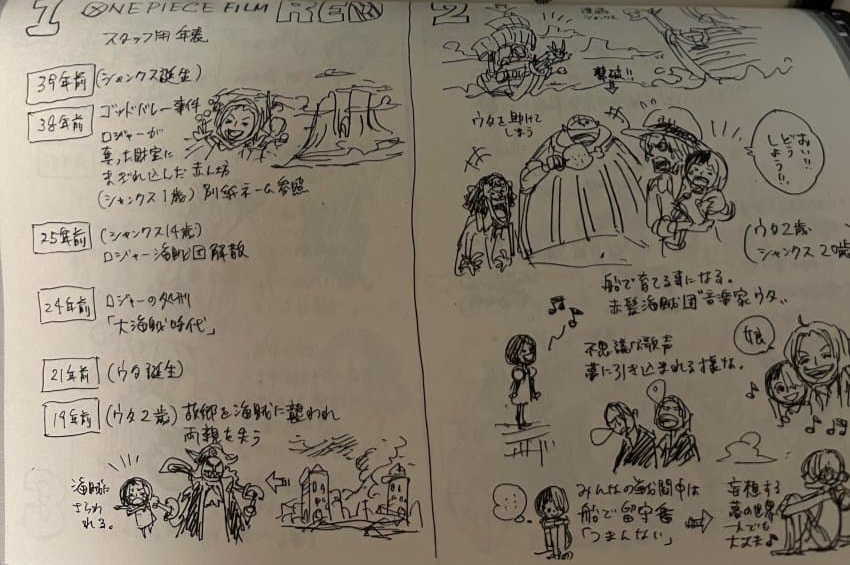 1 ONE PIECE FILM RED
スタッフ用年表
39年前 (シャンクス誕生)
38年前 ゴッドバレー事件
ロジャーが
奪った財宝に
まぎれ込んだ赤ん坊
(シャンクス1歳) 別紙ネーム参照
25年前 (シャンクス14歳)
ロジャー海賊団解散
24年前 ロジャーの処刑
「大海賊時代」
21年前 (ウタ誕生)
19年前 (ウタ2歳) 故郷を海賊に襲われ
両親を失う
海賊に
さらわ
れる。
2
撃破!!
ウタを助けて
しまう
おい!!
どう
しよう!!
(ウタ2歳
シャンクス20歳
船で育てる事になる。
赤髪海賊団"音楽家ウタ"
不思議な歌声
夢に引き込まれる様な。
娘
みんなの留守の間中は
船で留守番
「つまんない」
妄想する
夢の世界
一人でも
大丈夫♪